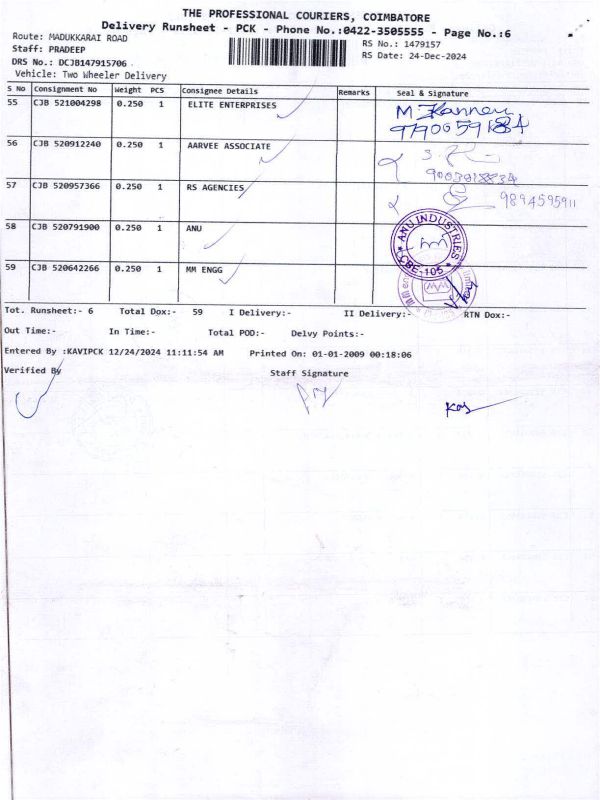 THE PROFESSIONAL COURIERS, COIMBATORE
Delivery Runsheet - PCK - Phone No.:0422-3505555 - Page No.:6
Route: MADUKKARAI ROAD
RS No.: 1479157
Staff: PRADEEP
RS Date: 24-Dec-2024
DRS No.: DCJB147915706
Vehicle: Two Wheeler Delivery
S No Consignment No Weight PCS Consignee Details Remarks Seal & Signature
55 CJB 521004298 0.250 1 ELITE ENTERPRISES
9790059184
56 CJB 520912240 0.250 1 AARVEE ASSOCIATE
9003918834
57 CJB 520957366 0.250 1 RS AGENCIES 9894595911
58 CJB 520791900 0.250 1 ANU ANU INDUSTRIES CBE-105
59 CJB 520642266 0.250 1 MM ENGG
Tot. Runsheet:- 6 Total Dox:- 59 I Delivery:- II Delivery:- RTN Dox:-
Out Time:- In Time:- Total POD:- Delvy Points:-
Entered By :KAVIPCK 12/24/2024 11:11:54 AM Printed On: 01-01-2009 00:18:06
Verified By Staff Signature